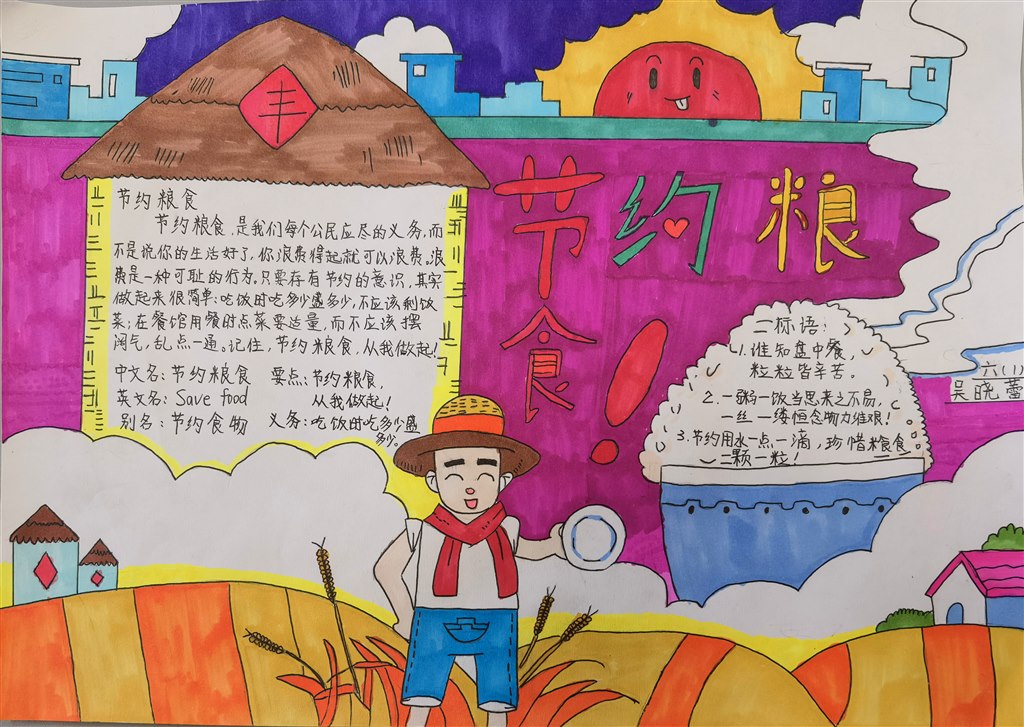 丰
节约粮食！
节约粮食
节约粮食,是我们每个公民应尽的义务,而
不是说你的生活好了,你浪费得起就可以浪费。浪
费是一种可耻的行为,只要存有节约的意识,其实
做起来很简单:吃饭时吃多少盛多少,不应该剩饭
菜;在餐馆用餐时点菜要适量,而不应该摆
阔气,乱点一通。记住,节约粮食,从我做起!
中文名:节约粮食 要点:节约粮食,
英文名:Save food 从我做起!
别名:节约食物 义务:吃饭时吃多少盛
多少。
标语:
1.谁知盘中餐,
粒粒皆辛苦。
2.一粥一饭当思来之不易,
一丝一缕恒念物力维艰!
3.节约用水一点一滴,珍惜粮食
一颗一粒!
六(1)
吴晓蕾